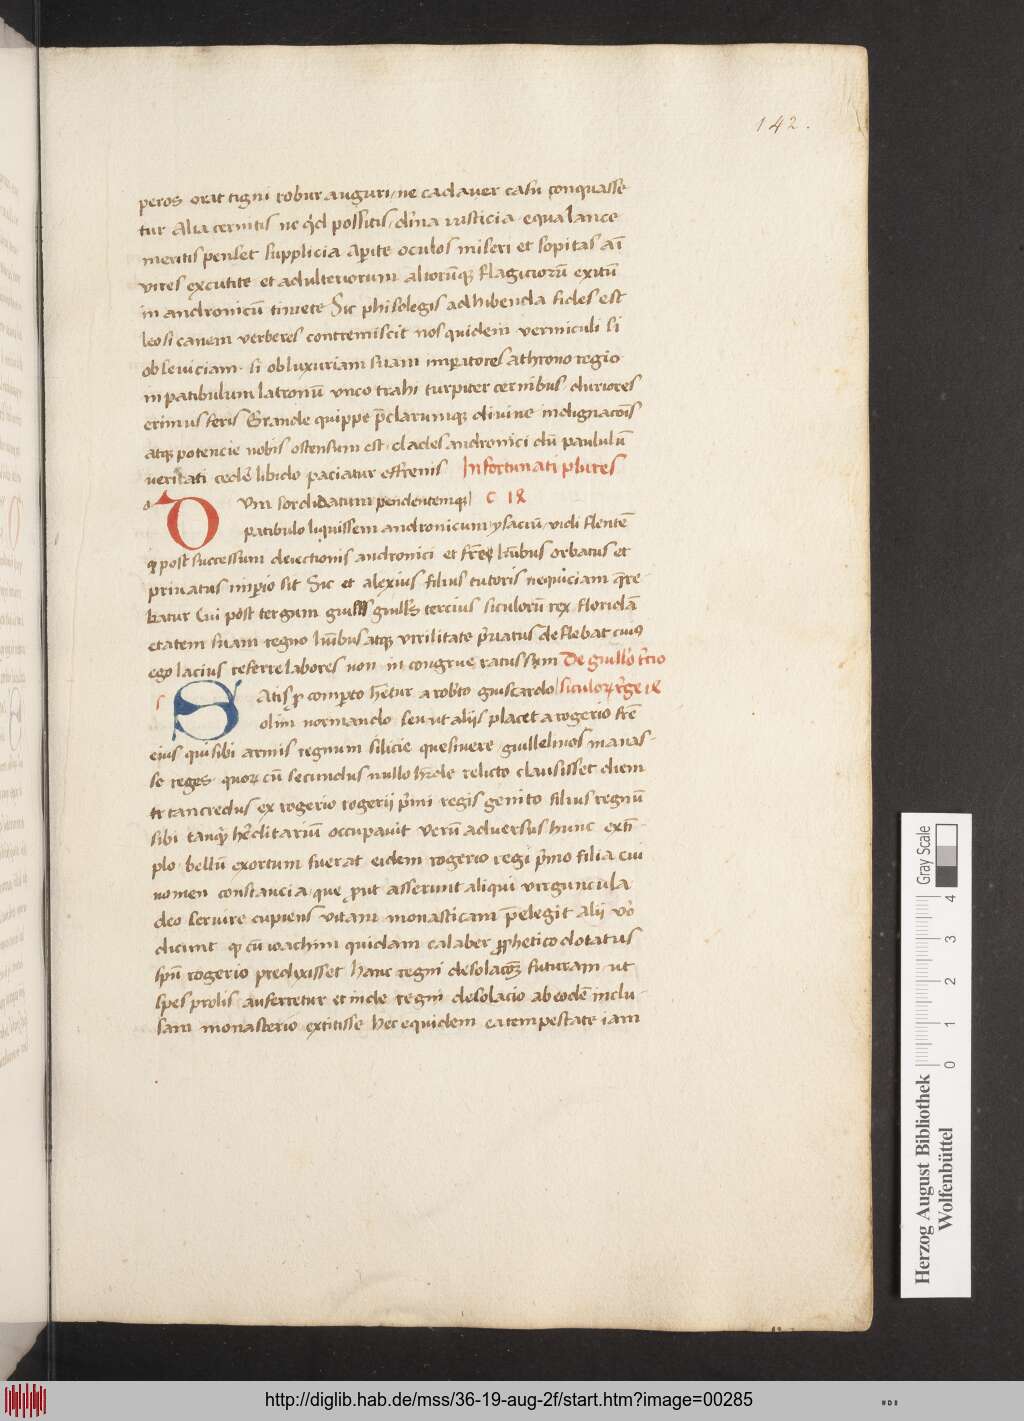 142.
peros orat tigni robur auguri / ne cadauer casu conquasse
tur Alia cernitis ne qd possitis / diuina iusticia equa lance
meritis penset supplicia Aperite oculos miseri et sopitas ai
vires excutite et adulteriorum aliorūque flagiciorū exitū
in andronicū timete Sic phisolegis adhibenda fides est
leo si canem verberes contremiscit nos quidem vermiculi si
obleuiciam · si ob luxuriam suam imperatores a throno regio
in patibulum latronū vnco trahi turpiter cernibus duriores
erimus feris Grande quippe preclarumque diuine indignacois
atque potencie nobis ostensum est · clades andronici dū paululū
veritati cedere libido paciatur effrenis Infortunati plures
d Vm sordidatum pendentemque C IX
patibulo liquissem andronicum ysaciū / vidi flentē
q post successum deiectionis andronici et fres luībus orbatus et
priuatus imperio sit Sic et alexius filius tutoris nequiciam q̄re
batur Cui post tergum guill's tercius siculorū rex floridā
etatem suam regno luībus atque virilitate priuatus deflebat cuius
ego lacius referre labores non incongrue ratus sum De guillo t'cio
s Satis pro comperto h̄etur a rob'to guiscardo siculorum rege
olim normando seu ut alijs placet a rogerio fr̄e
eius qui sibi armis regnum silicie quesiuere · gullelmos manas-
se reges quorum cū secundus nullo h̄ede relicto clausisset diem
et tancredus ex rogerio rogerij primi regis genito filius regnū
sibi tanquam h'editariū occupauit verū aduersus hunc exē-
plo bellū exortum fuerat eidem rogerio regi primo filia cui
nomen constancia que prout asserunt aliqui virguncula
deo seruire cupiens vitam monasticam prelegit alij vo
dicunt q cū ioachim quidam calaber prophetico dotatus
spū rogerio predixisset hanc regni desolacōem futuram · ut
spes prolis auferretur et inde regni desolacio ab eodē inclu-
sam monasterio extitisse hec equidem ea tempestate iam
Gray Scale
0 1 2 3 4
Herzog August Bibliothek
Wolfenbüttel
http://diglib.hab.de/mss/36-19-aug-2f/start.htm?image=00285